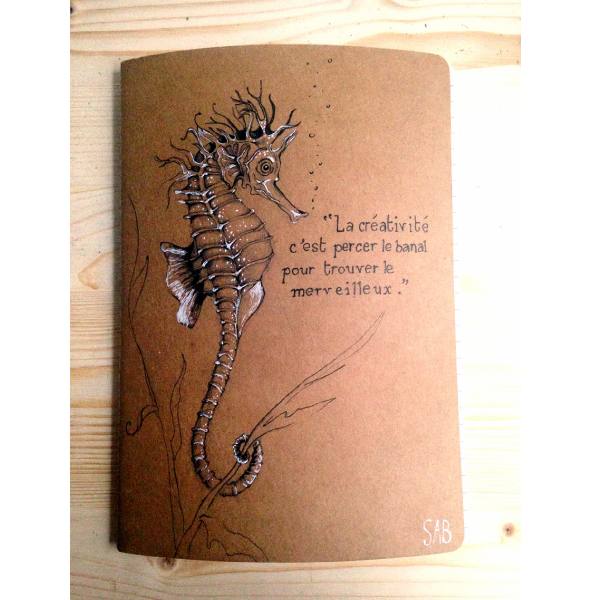 “La créativité
c'est percer le banal
pour trouver le
merveilleux.”
SAB